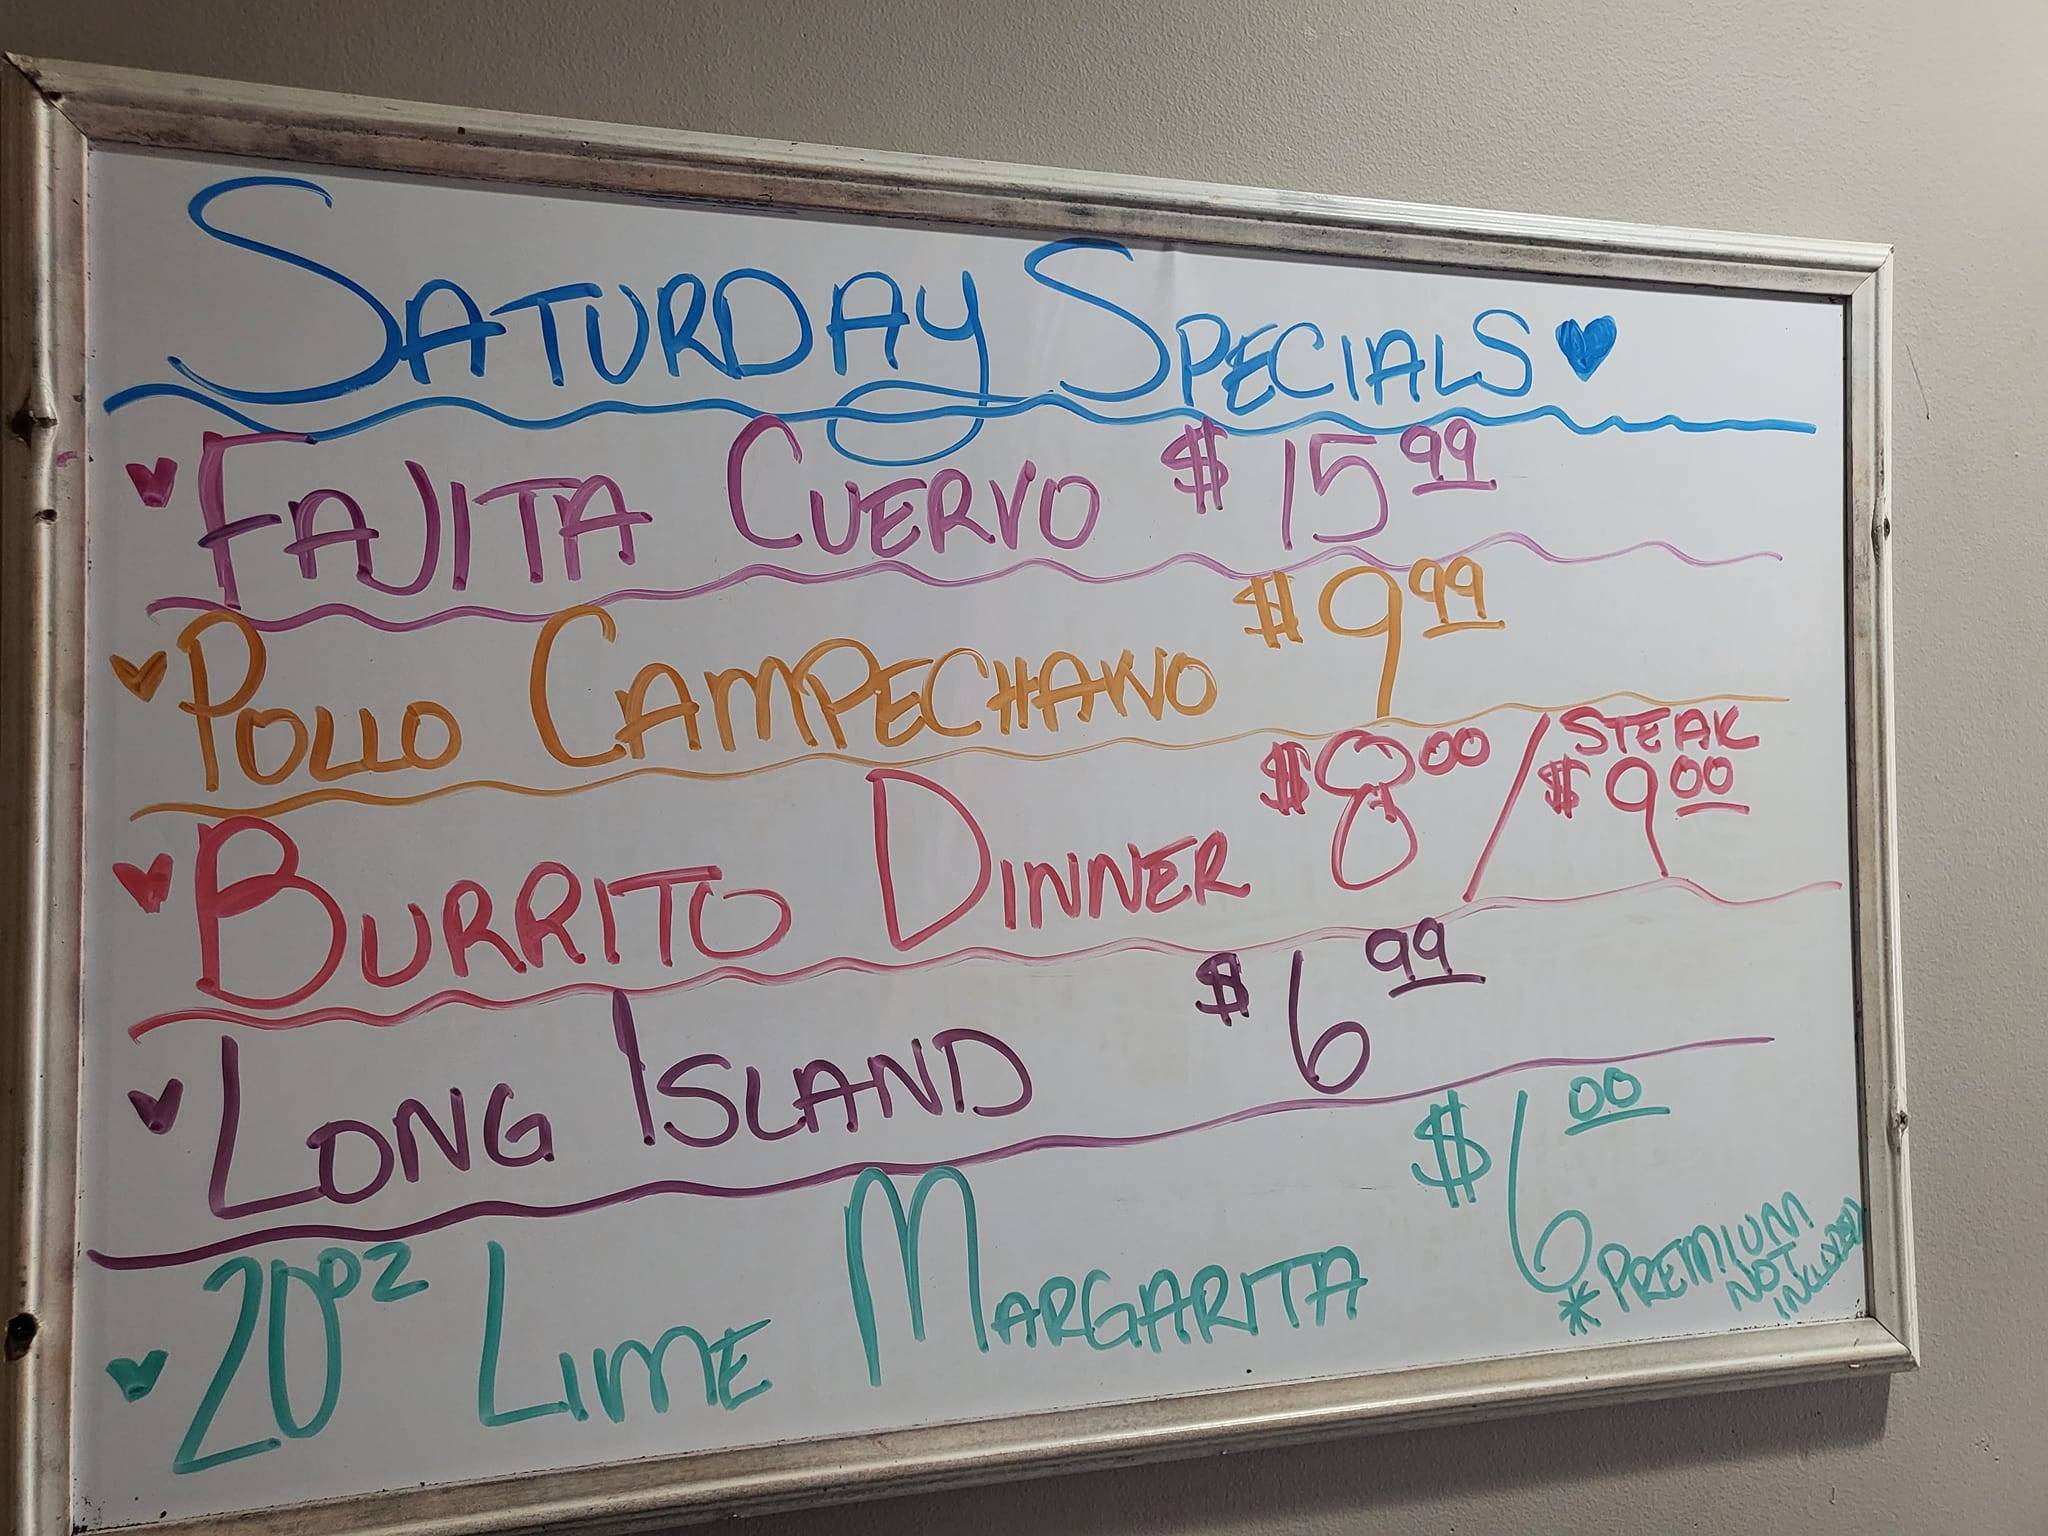 SATURDAY SPECIALS
FAJITA CUERVO $15.99
POLLO CAMPECHANO $9.99
BURRITO DINNER $8.00 / STEAK $9.00
LONG ISLAND $6.99
20oz LIME MARGARITA $6.00
*PREMIUM
NOT
INCLUDED